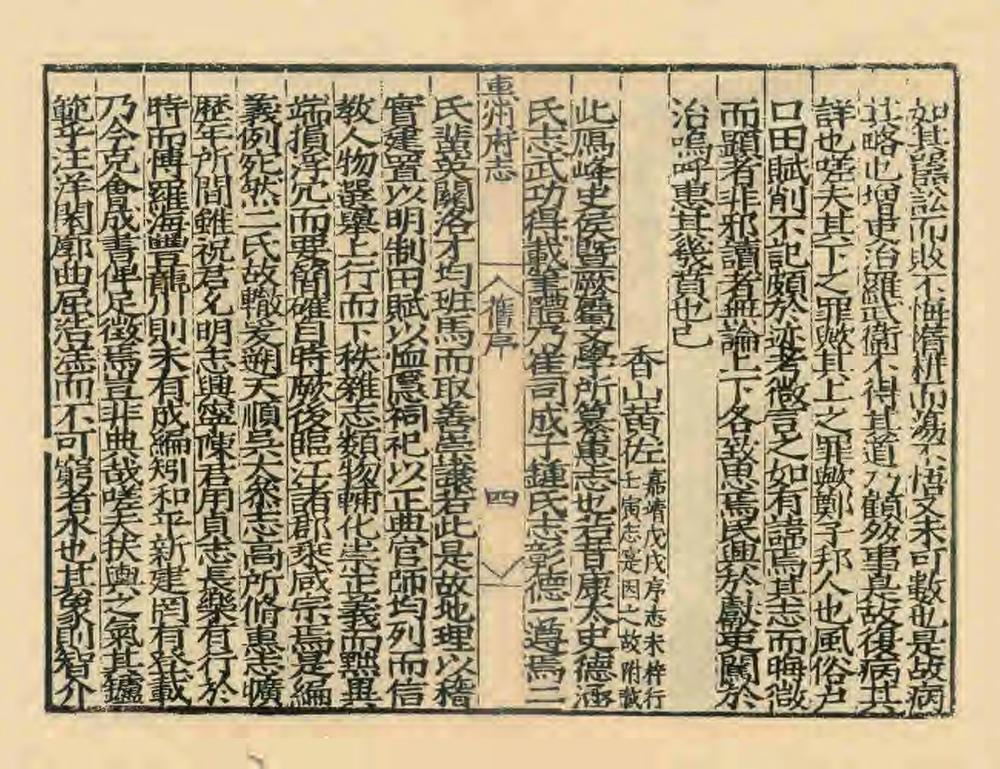 如其嚚訟而敗不悔惰耕而荡不悟又未可數也是故病
其略也增事治羅武衛不得其道乃顧夥事是故復病其
詳也嗟夫其下之罪歟其上之罪歟鄭子邦人也風俗户
口田賦削不記頗於迹考微言之如有諱焉其志而晦微
而顯者非邪讀者無論上下各致思焉民興於獻吏闢於
治嗚呼惠其幾黃也已
香山黄佐嘉靖戊戌序志未梓行
壬寅志寔因之故附載
此鴈峰史侯暨厥屬文學所篡惠志也若昔康太史德涵
氏志武功得載筆體乃崔司成子鍾氏志彰德一遵焉二
惠州府志
舊序
四
氏蜚英關洛才均班馬而取善崇讓若此是故地理以稽
實建置以明制田賦以恤隱祠祀以正典官師均列而信
教人物選舉上行而下秩雜志類物輔化崇正義而黜異
端損浮冗而要簡確自時厥後臨江諸郡桼咸宗焉是編
義例宛然二氏故轍爰朔天順吳大叅志高所脩惠志曠
歷年所間雖祝君允明志興寧陳君用貞志長樂有行於
時而博羅海豐龍川則未有成編矧和平新建罔有登載
乃今克會成書俾足徵焉豈非典哉嗟夫扶輿之氣其鑪
範乎汪洋閎廓曲屈浩瀁而不可窮者水也其象則智介